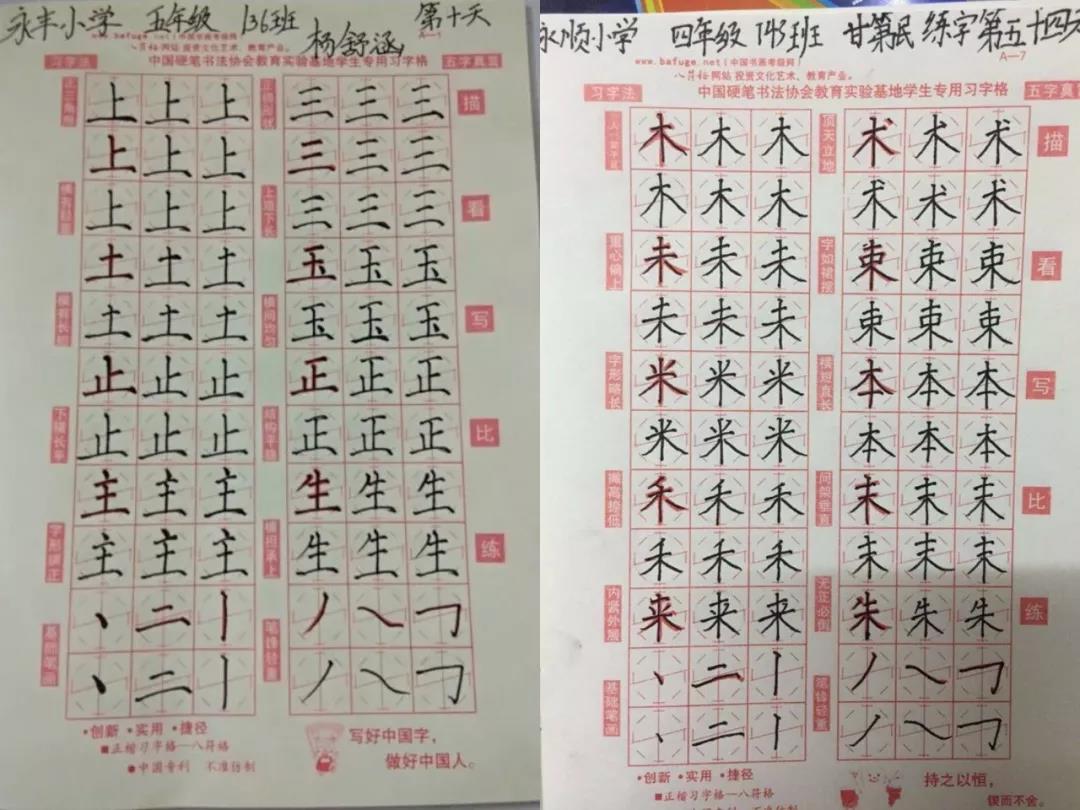 永丰小学 五年级 136班 杨舒涵 第十天
www.bafuge.net(中国书画考级网) A—1
八符格网站 投资文化艺术、教育产业。
习字法 中国硬笔书法协会教育实验基地学生专用习字格 五字真
上上上 三三三 描
上上上 三三三
上上上 三三三 看
土土土 玉玉玉
土土土 玉玉玉 写
止止止 正正正
止止止 正正正 比
主主主 生生生
主主主 生生生 练
丶二丨 丿㇏㇆
丶二丨 丿㇏㇆
上短下长
横间均匀
结构平稳
横担承上
笔锋轻重
下横长平
基础笔画
·创新 ·实用 ·捷径
■正楷习字格—八符格
●中国专利 不准仿制
写好中国字，
做好中国人。
永顺小学 四年级 145班 甘第民 练字第五十四天
www.bafuge.net(中国书画考级网) A—7
八符格网站 投资文化艺术、教育产业。
习字法 中国硬笔书法协会教育实验基地学生专用习字格 五字真
木木木 术术术 描
木木木 术术术
未未未 束束束 看
未未未 束束束
米米米 本本本 写
米米米 本本本
禾禾禾 末末末 比
禾禾禾 末末末
来来来 朱朱朱 练
丶二丨 丿㇏㇆
丶二丨 丿㇏㇆
重心偏上
字形略长
撇高捺低
内紧外展
基础笔画
顶天立地
字如裙摆
横短直长
间架垂直
无正必倒
笔锋轻重
·创新 ·实用 ·捷径
■正楷习字格—八符格
持之以恒，
锲而不舍。